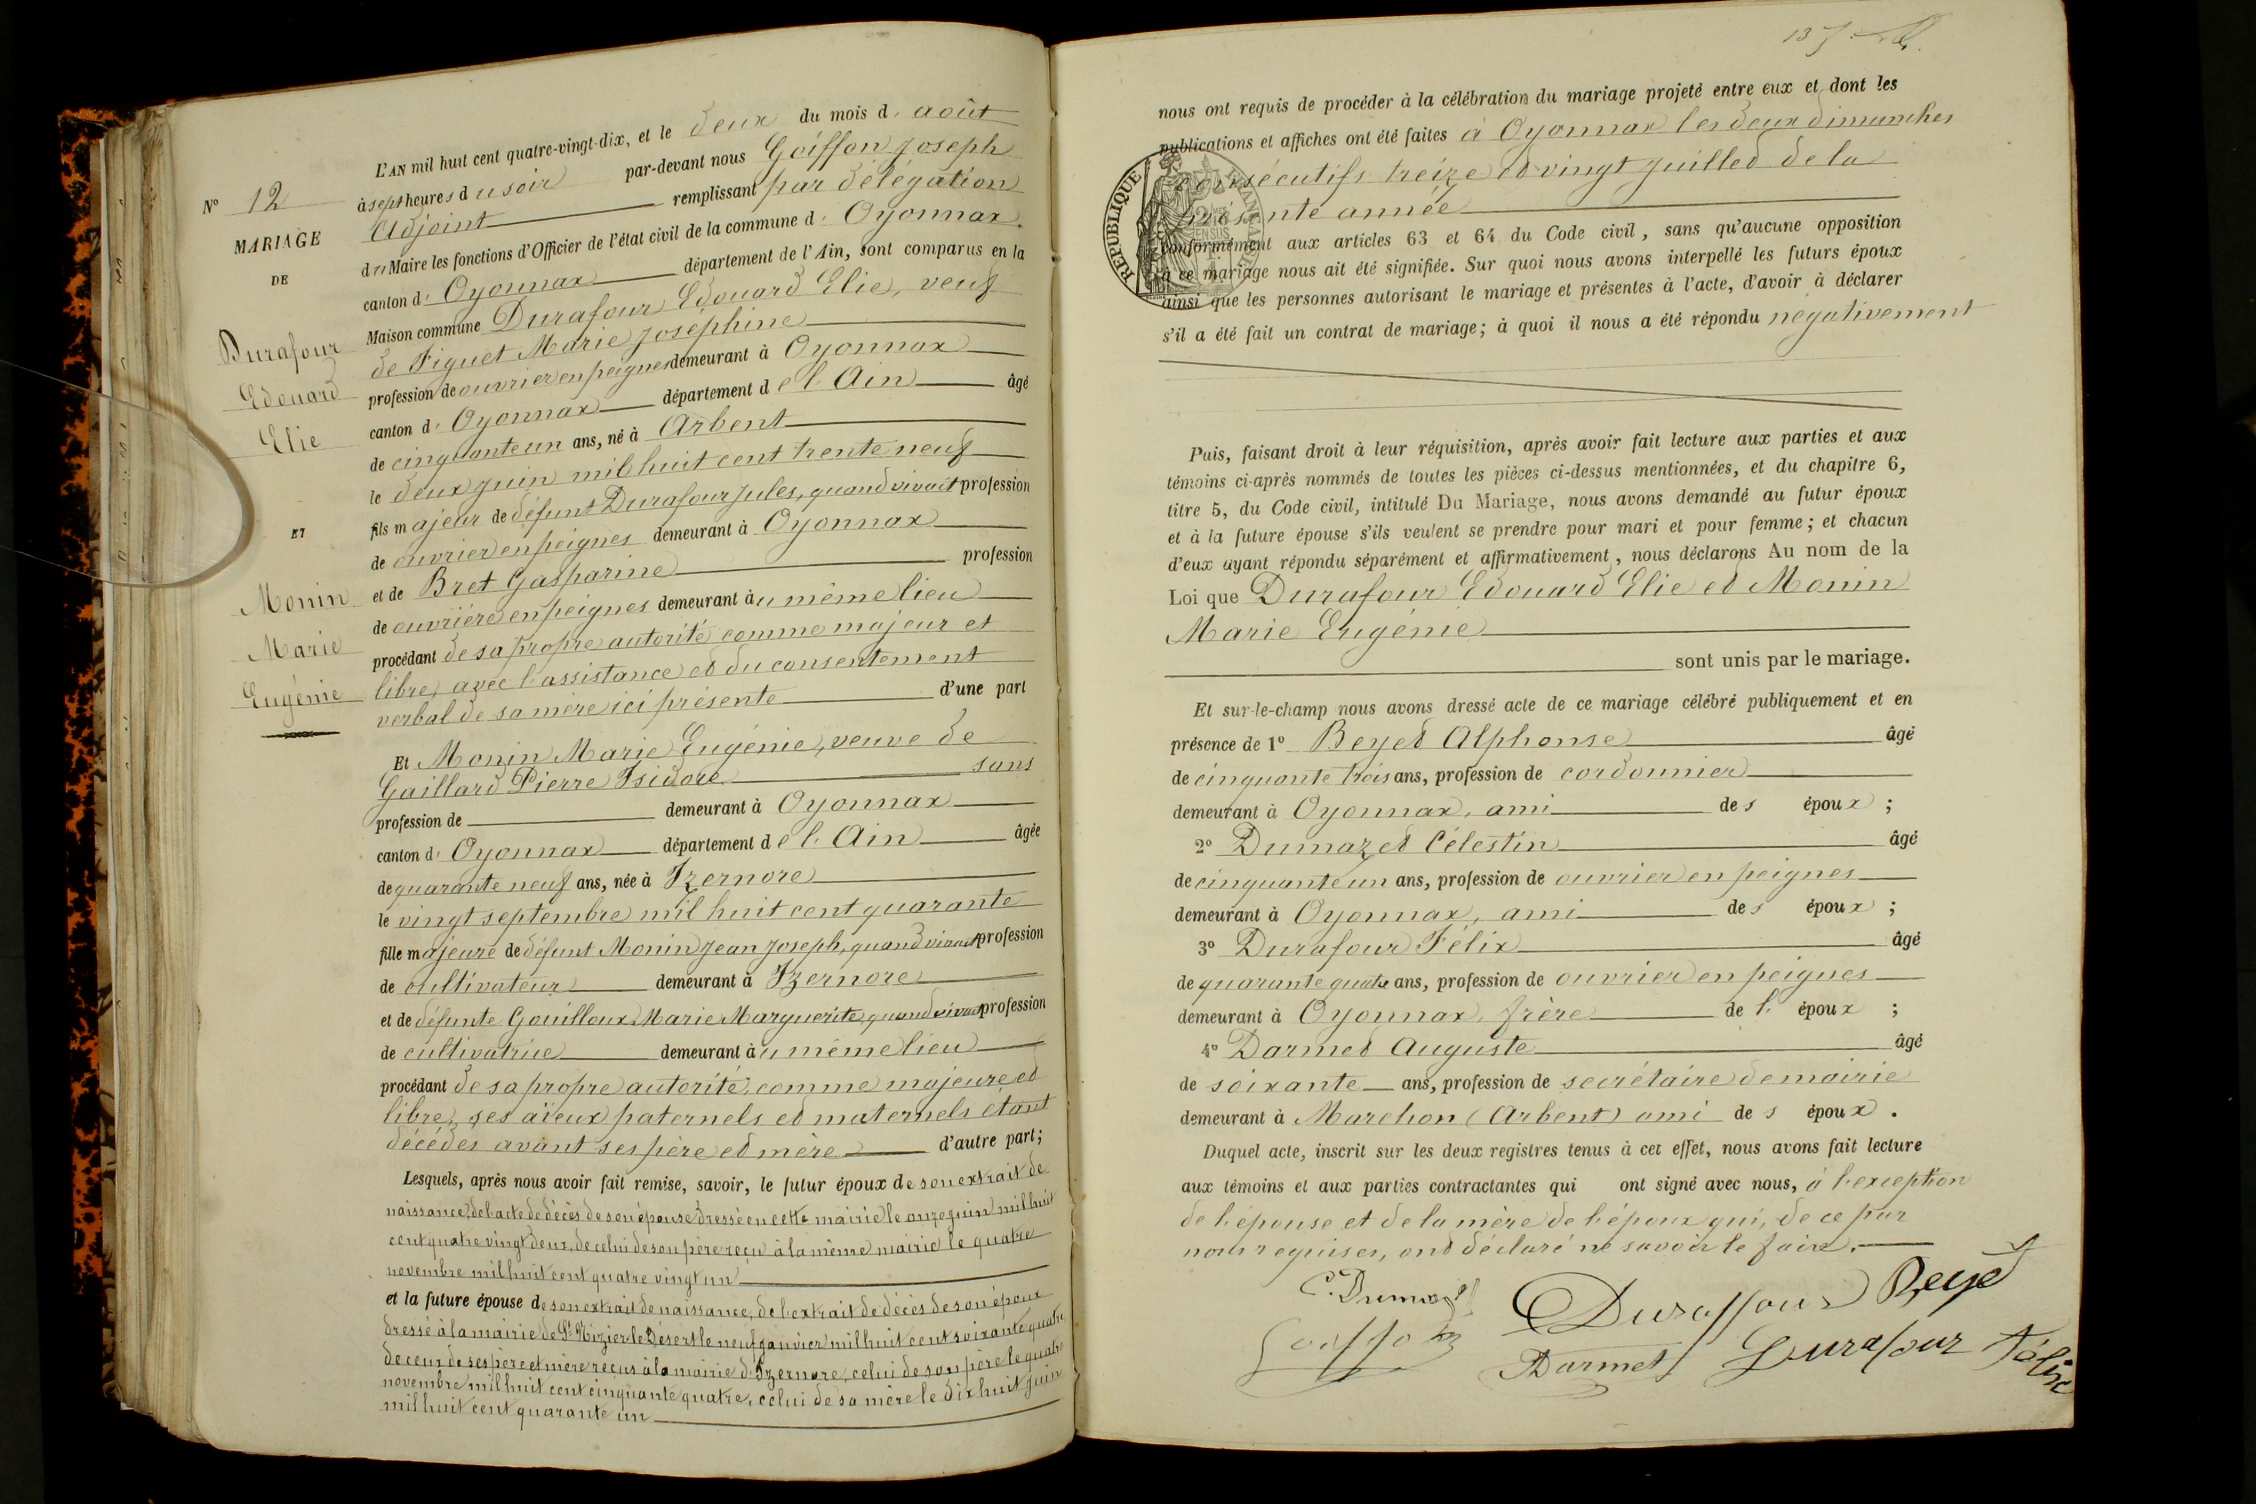 N° 12
MARIAGE
DE
Durafour
Edouard
Elie
ET
Monin
Marie
Eugénie
L'AN mil huit cent quatre-vingt-dix, et le deux du mois d' août
à sept heures du soir par-devant nous Goiffon Joseph
Adjoint remplissant par délégation
du Maire les fonctions d'Officier de l'état civil de la commune d' Oyonnax
canton d' Oyonnax département de l'Ain, sont comparus en la
Maison commune Durafour Edouard Elie, veuf
de Figuet Marie Joséphine
profession de ouvrier en peignes demeurant à Oyonnax
canton d' Oyonnax département de l'Ain âgé
de cinquante un ans, né à Arbent
le deux juin mil huit cent trente neuf
fils majeur de défunt Durafour Jules, quand vivait profession
de ouvrier en peignes demeurant à Oyonnax
et de Bret Gasparine profession
de ouvrière en peignes demeurant au même lieu
procédant de sa propre autorité comme majeur et
libre, avec l'assistance et du consentement
verbal de sa mère ici présente d'une part
Et Monin Marie Eugénie, veuve de
Gaillard Pierre Isidore sans
profession de demeurant à Oyonnax
canton d' Oyonnax département de l'Ain âgée
de quarante neuf ans, née à Izernore
le vingt septembre mil huit cent quarante
fille majeure de défunt Monin Jean Joseph, quand vivait profession
de cultivateur demeurant à Izernore
et de défunte Gouilloux Marie Marguerite, quand vivait profession
de cultivatrice demeurant au même lieu
procédant de sa propre autorité, comme majeure et
libre, ses aïeux paternels et maternels étant
décédés avant ses père et mère d'autre part;
Lesquels, après nous avoir fait remise, savoir, le futur époux de son extrait de
naissance, de l'acte de décès de son épouse dressé en cette mairie le onze juin mil huit
cent quatre vingt deux, de celui de son père reçu à la même mairie le quatre
novembre mil huit cent quatre vingt un
et la future épouse de son extrait de naissance, de l'extrait de décès de son époux
dressé à la mairie de St Nizier le Désert le neuf janvier mil huit cent soixante quatre
de ceux de ses père et mère reçus à la mairie d'Izernore, celui de son père le quatre
novembre mil huit cent cinquante quatre, celui de sa mère le dix huit juin
mil huit cent quarante un
137
nous ont requis de procéder à la célébration du mariage projeté entre eux et dont les
publications et affiches ont été faites à Oyonnax les deux dimanches
consécutifs treize et vingt juillet de la
présente année
conformément aux articles 63 et 64 du Code civil, sans qu'aucune opposition
à ce mariage nous ait été signifiée. Sur quoi nous avons interpellé les futurs époux
ainsi que les personnes autorisant le mariage et présentes à l'acte, d'avoir à déclarer
s'il a été fait un contrat de mariage; à quoi il nous a été répondu négativement
RÉPUBLIQUE FRANÇAISE
Puis, faisant droit à leur réquisition, après avoir fait lecture aux parties et aux
témoins ci-après nommés de toutes les pièces ci-dessus mentionnées, et du chapitre 6,
titre 5, du Code civil, intitulé Du Mariage, nous avons demandé au futur époux
et à la future épouse s'ils veulent se prendre pour mari et pour femme; et chacun
d'eux ayant répondu séparément et affirmativement, nous déclarons Au nom de la
Loi que Durafour Edouard Elie et Monin
Marie Eugénie
sont unis par le mariage.
Et sur-le-champ nous avons dressé acte de ce mariage célébré publiquement et en
présence de 1° Beyet Alphonse âgé
de cinquante trois ans, profession de cordonnier
demeurant à Oyonnax, ami des époux;
2° Dumazet Célestin âgé
de cinquante un ans, profession de ouvrier en peignes
demeurant à Oyonnax, ami des époux;
3° Durafour Félix âgé
de quarante quatre ans, profession de ouvrier en peignes
demeurant à Oyonnax, frère de l' époux;
4° Darmet Auguste âgé
de soixante ans, profession de secrétaire de mairie
demeurant à Marchon (Arbent) ami des époux.
Duquel acte, inscrit sur les deux registres tenus à cet effet, nous avons fait lecture
aux témoins et aux parties contractantes qui ont signé avec nous, à l'exception
de l'épouse et de la mère de l'époux qui, de ce par
nous requises, ont déclaré ne savoir le faire.
C. Dumazet Duraffour Beyet
Goiffon Darmet Durafour Félix